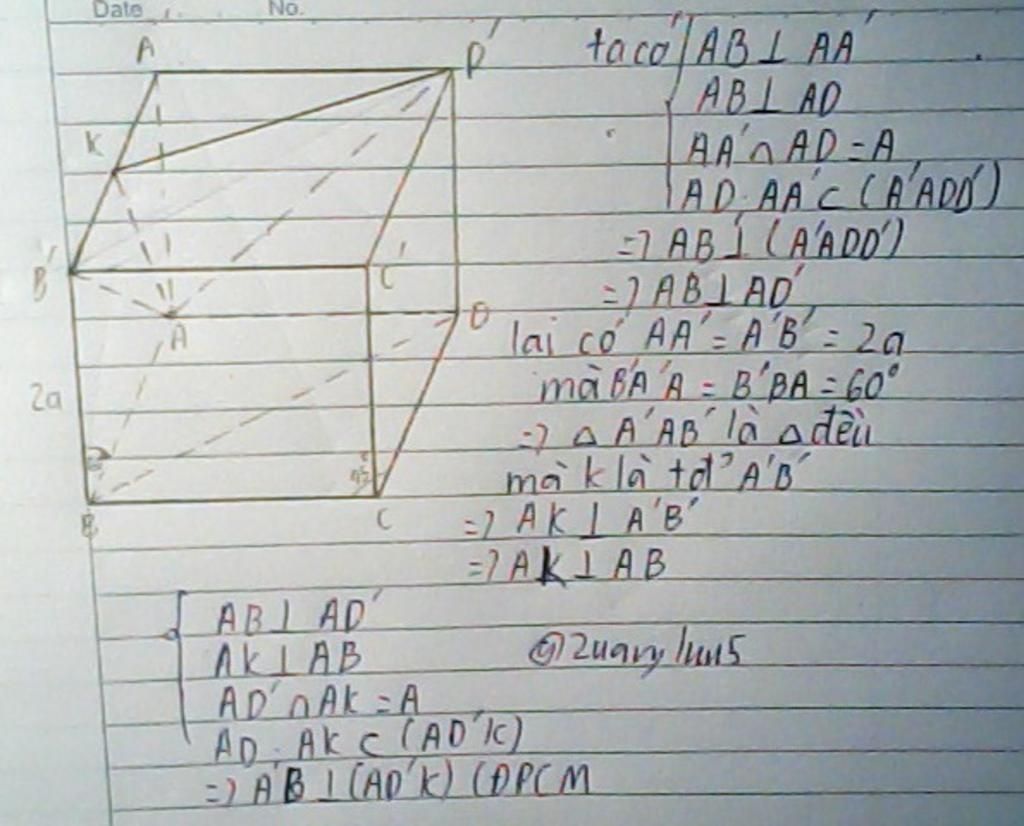 Date No.
A D'
K
B' C'
A D
2a
B C
ta có AB ⊥ AA'
AB ⊥ AD
AA' ∩ AD = A
AD. AA' ⊂ (A'ADD')
=> AB ⊥ (A'ADD')
=> AB ⊥ AD'
lại có AA' = A'B' = 2a
mà B'A'A = B'BA = 60°
=> △ A'AB' là △ đều
mà k là tđ² A'B'
=> AK ⊥ A'B'
=> AK ⊥ AB
AB ⊥ AD'
AK ⊥ AB
AD' ∩ AK = A
AD. AK ⊂ (AD'K)
=> A'B ⊥ (AD'K) (ĐPCM